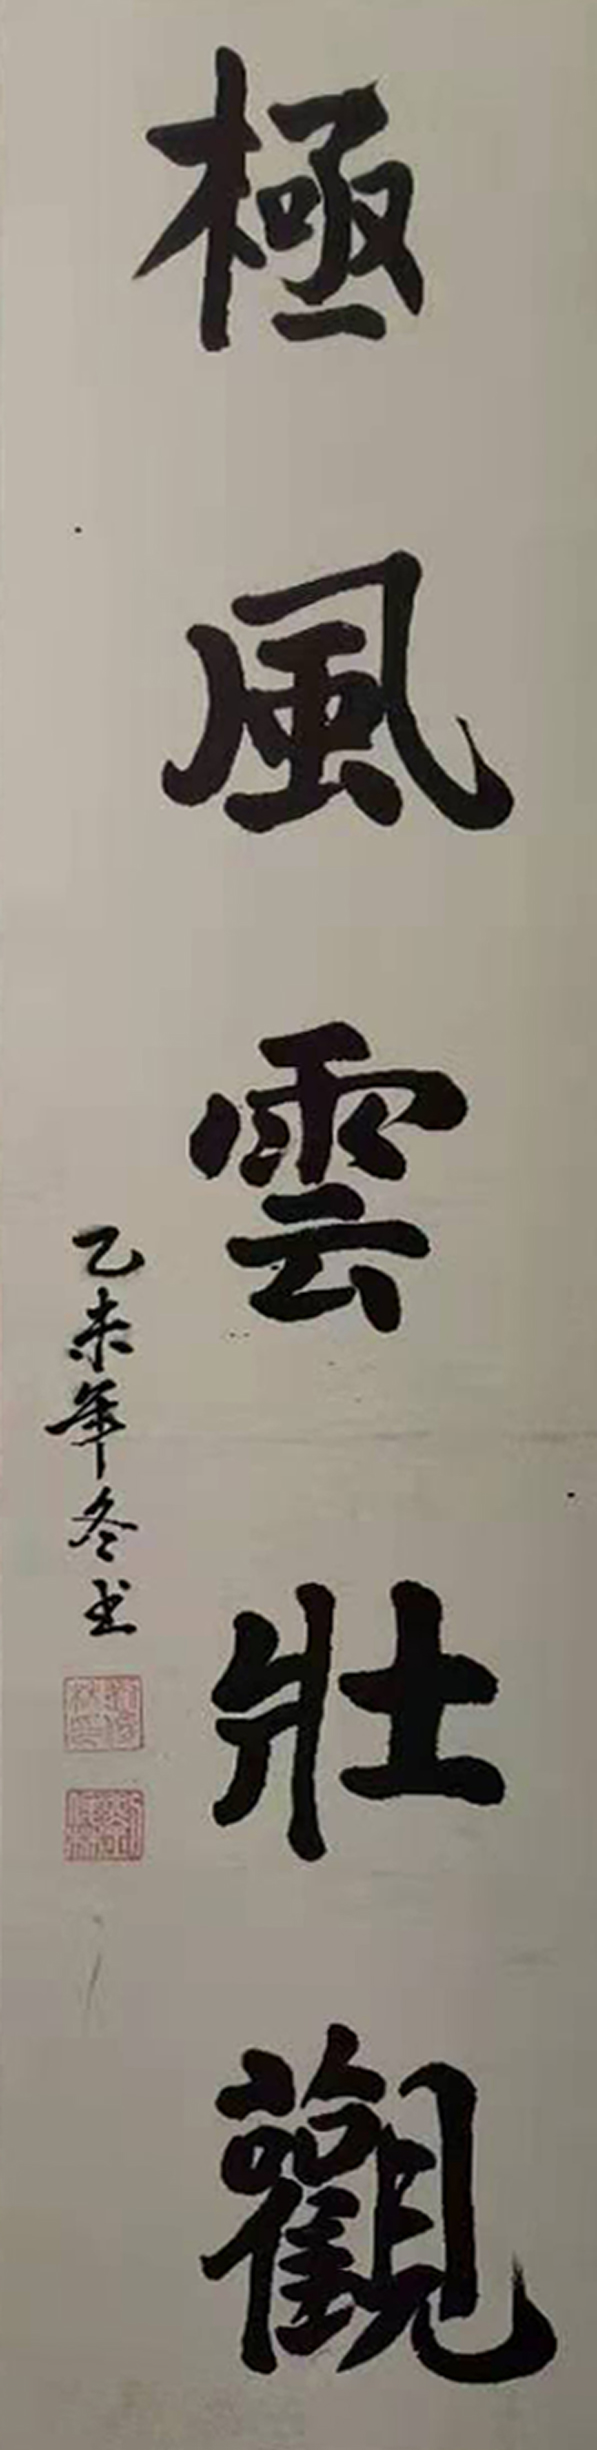 極風雲壯觀
乙未年冬书